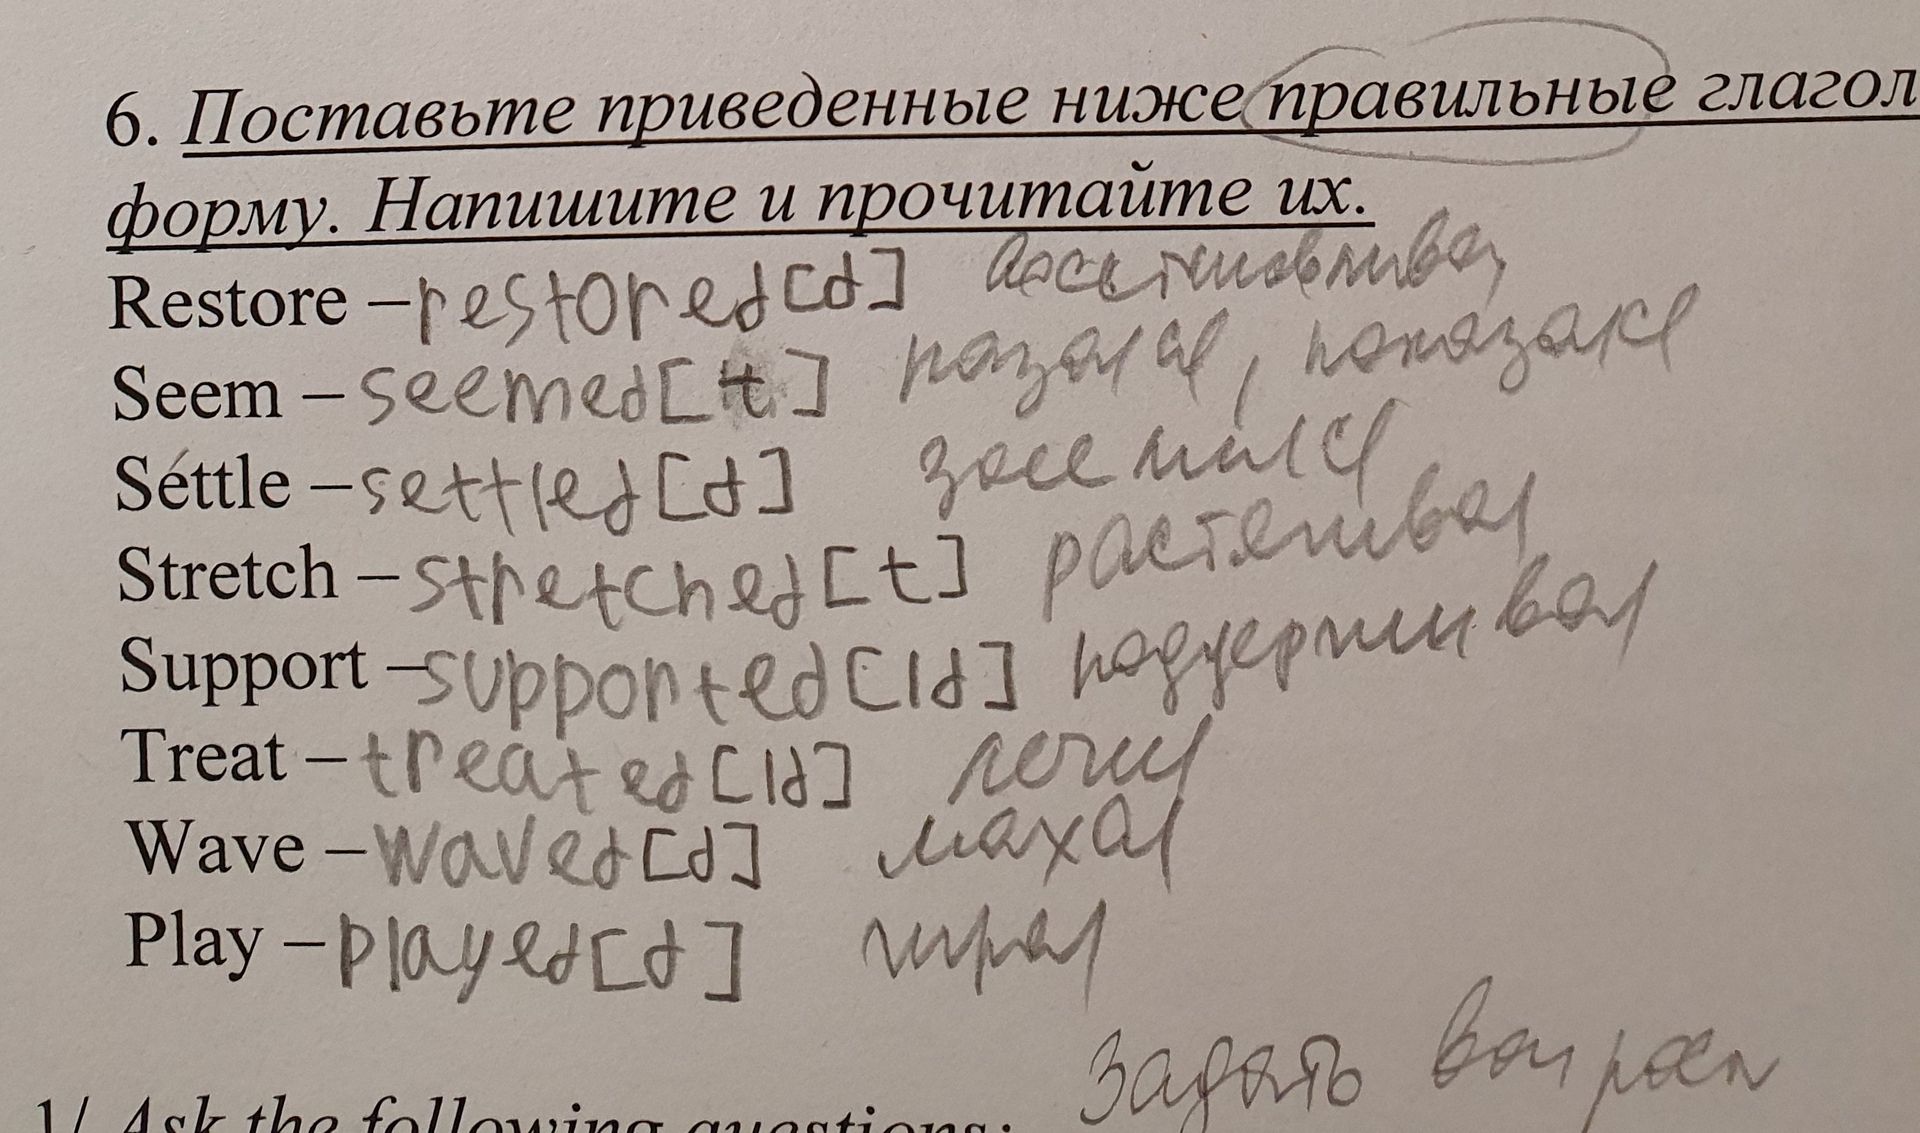 6. Поставьте приведенные ниже правильные глагол
форму. Напишите и прочитайте их.
Restore – restored [d] восстановливал
Seem – seemed [t] казался, показался
Séttle – settled [d] заселился
Stretch – stretched [t] растягивал
Support – supported [Id] поддерживал
Treat – treated [Id] лечил
Wave – waved [d] махал
Play – played [d] играл
Задать
1/ Ask the following questions: